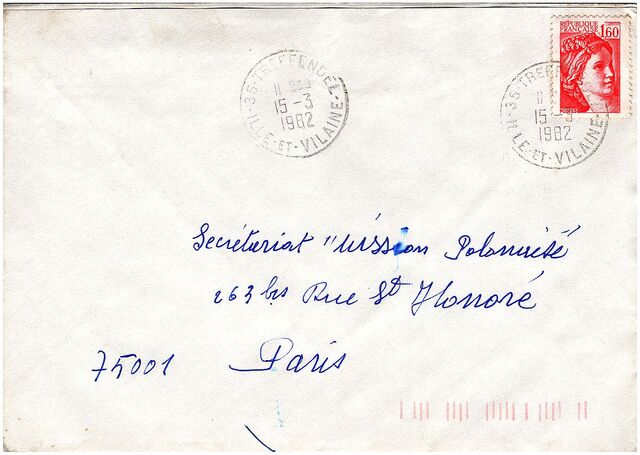 RÉPUBLIQUE
FRANÇAISE 1,60
35-TREFFENDEL
11 H
15-3
1982
ILLE-ET-VILAINE
35-TREFF
11
15-3
1982
ILLE-ET-VILAINE
Secrétariat "Mission
263 bis Rue St Honoré
75001 Paris